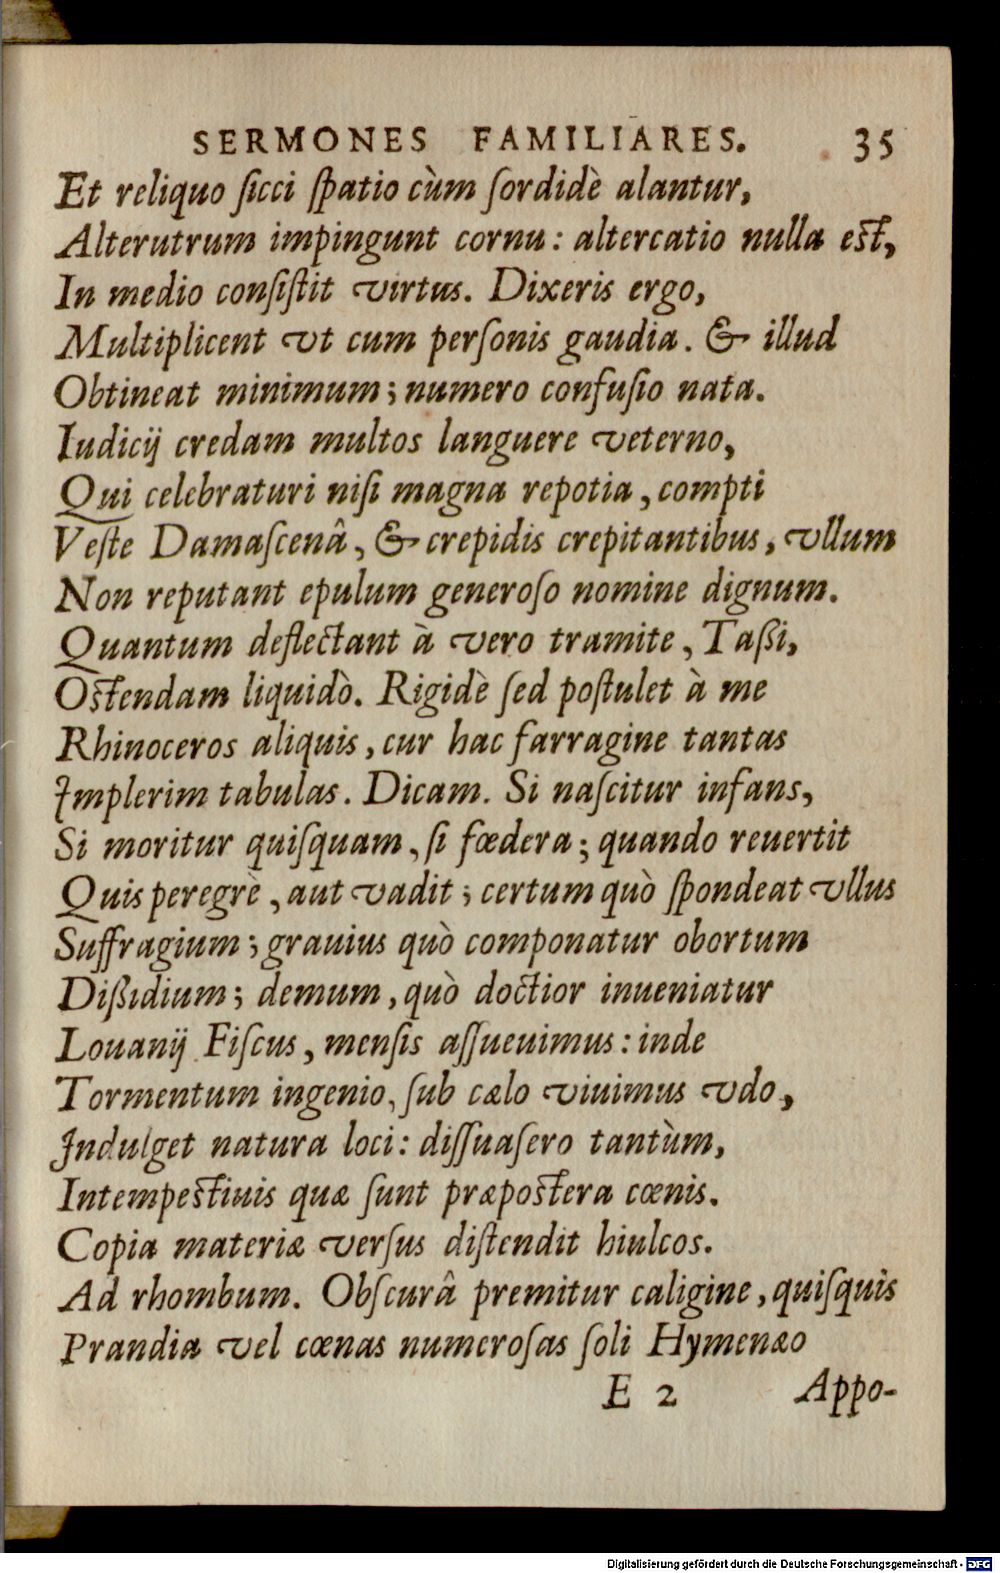 SERMONES FAMILIARES. 35
Et reliquo ſicci ſpatio cùm ſordidè alantur,
Alterutrum impingunt cornu: altercatio nulla est,
In medio conſiſtit virtus. Dixeris ergo,
Multiplicent vt cum perſonis gaudia. & illud
Obtineat minimum; numero confuſio nata.
Iudicij credam multos languere veterno,
Qui celebraturi niſi magna repotia, compti
Veſte Damaſcenâ, & crepidis crepitantibus, vllum
Non reputant epulum generoſo nomine dignum.
Quantum deflectant à vero tramite, Taßi,
Ostendam liquidò. Rigidè ſed poſtulet à me
Rhinoceros aliquis, cur hac farragine tantas
Implerim tabulas. Dicam. Si naſcitur infans,
Si moritur quiſquam, ſi fœdera; quando reuertit
Quis peregrè, aut vadit; certum quò ſpondeat vllus
Suffragium; grauius quò componatur obortum
Dißidium; demum, quò doctior inueniatur
Louanij Fiſcus, menſis aſſueuimus: inde
Tormentum ingenio, ſub cælo viuimus vdo,
Indulget natura loci: diſſuaſero tantùm,
Intempestiuis quæ ſunt præpostera cœnis.
Copia materiæ verſus diſtendit hiulcos.
Ad rhombum. Obſcurâ premitur caligine, quiſquis
Prandia vel cœnas numeroſas ſoli Hymenæo
E 2 Appo-
Digitalisierung gefördert durch die Deutsche Forschungsgemeinschaft - DFG